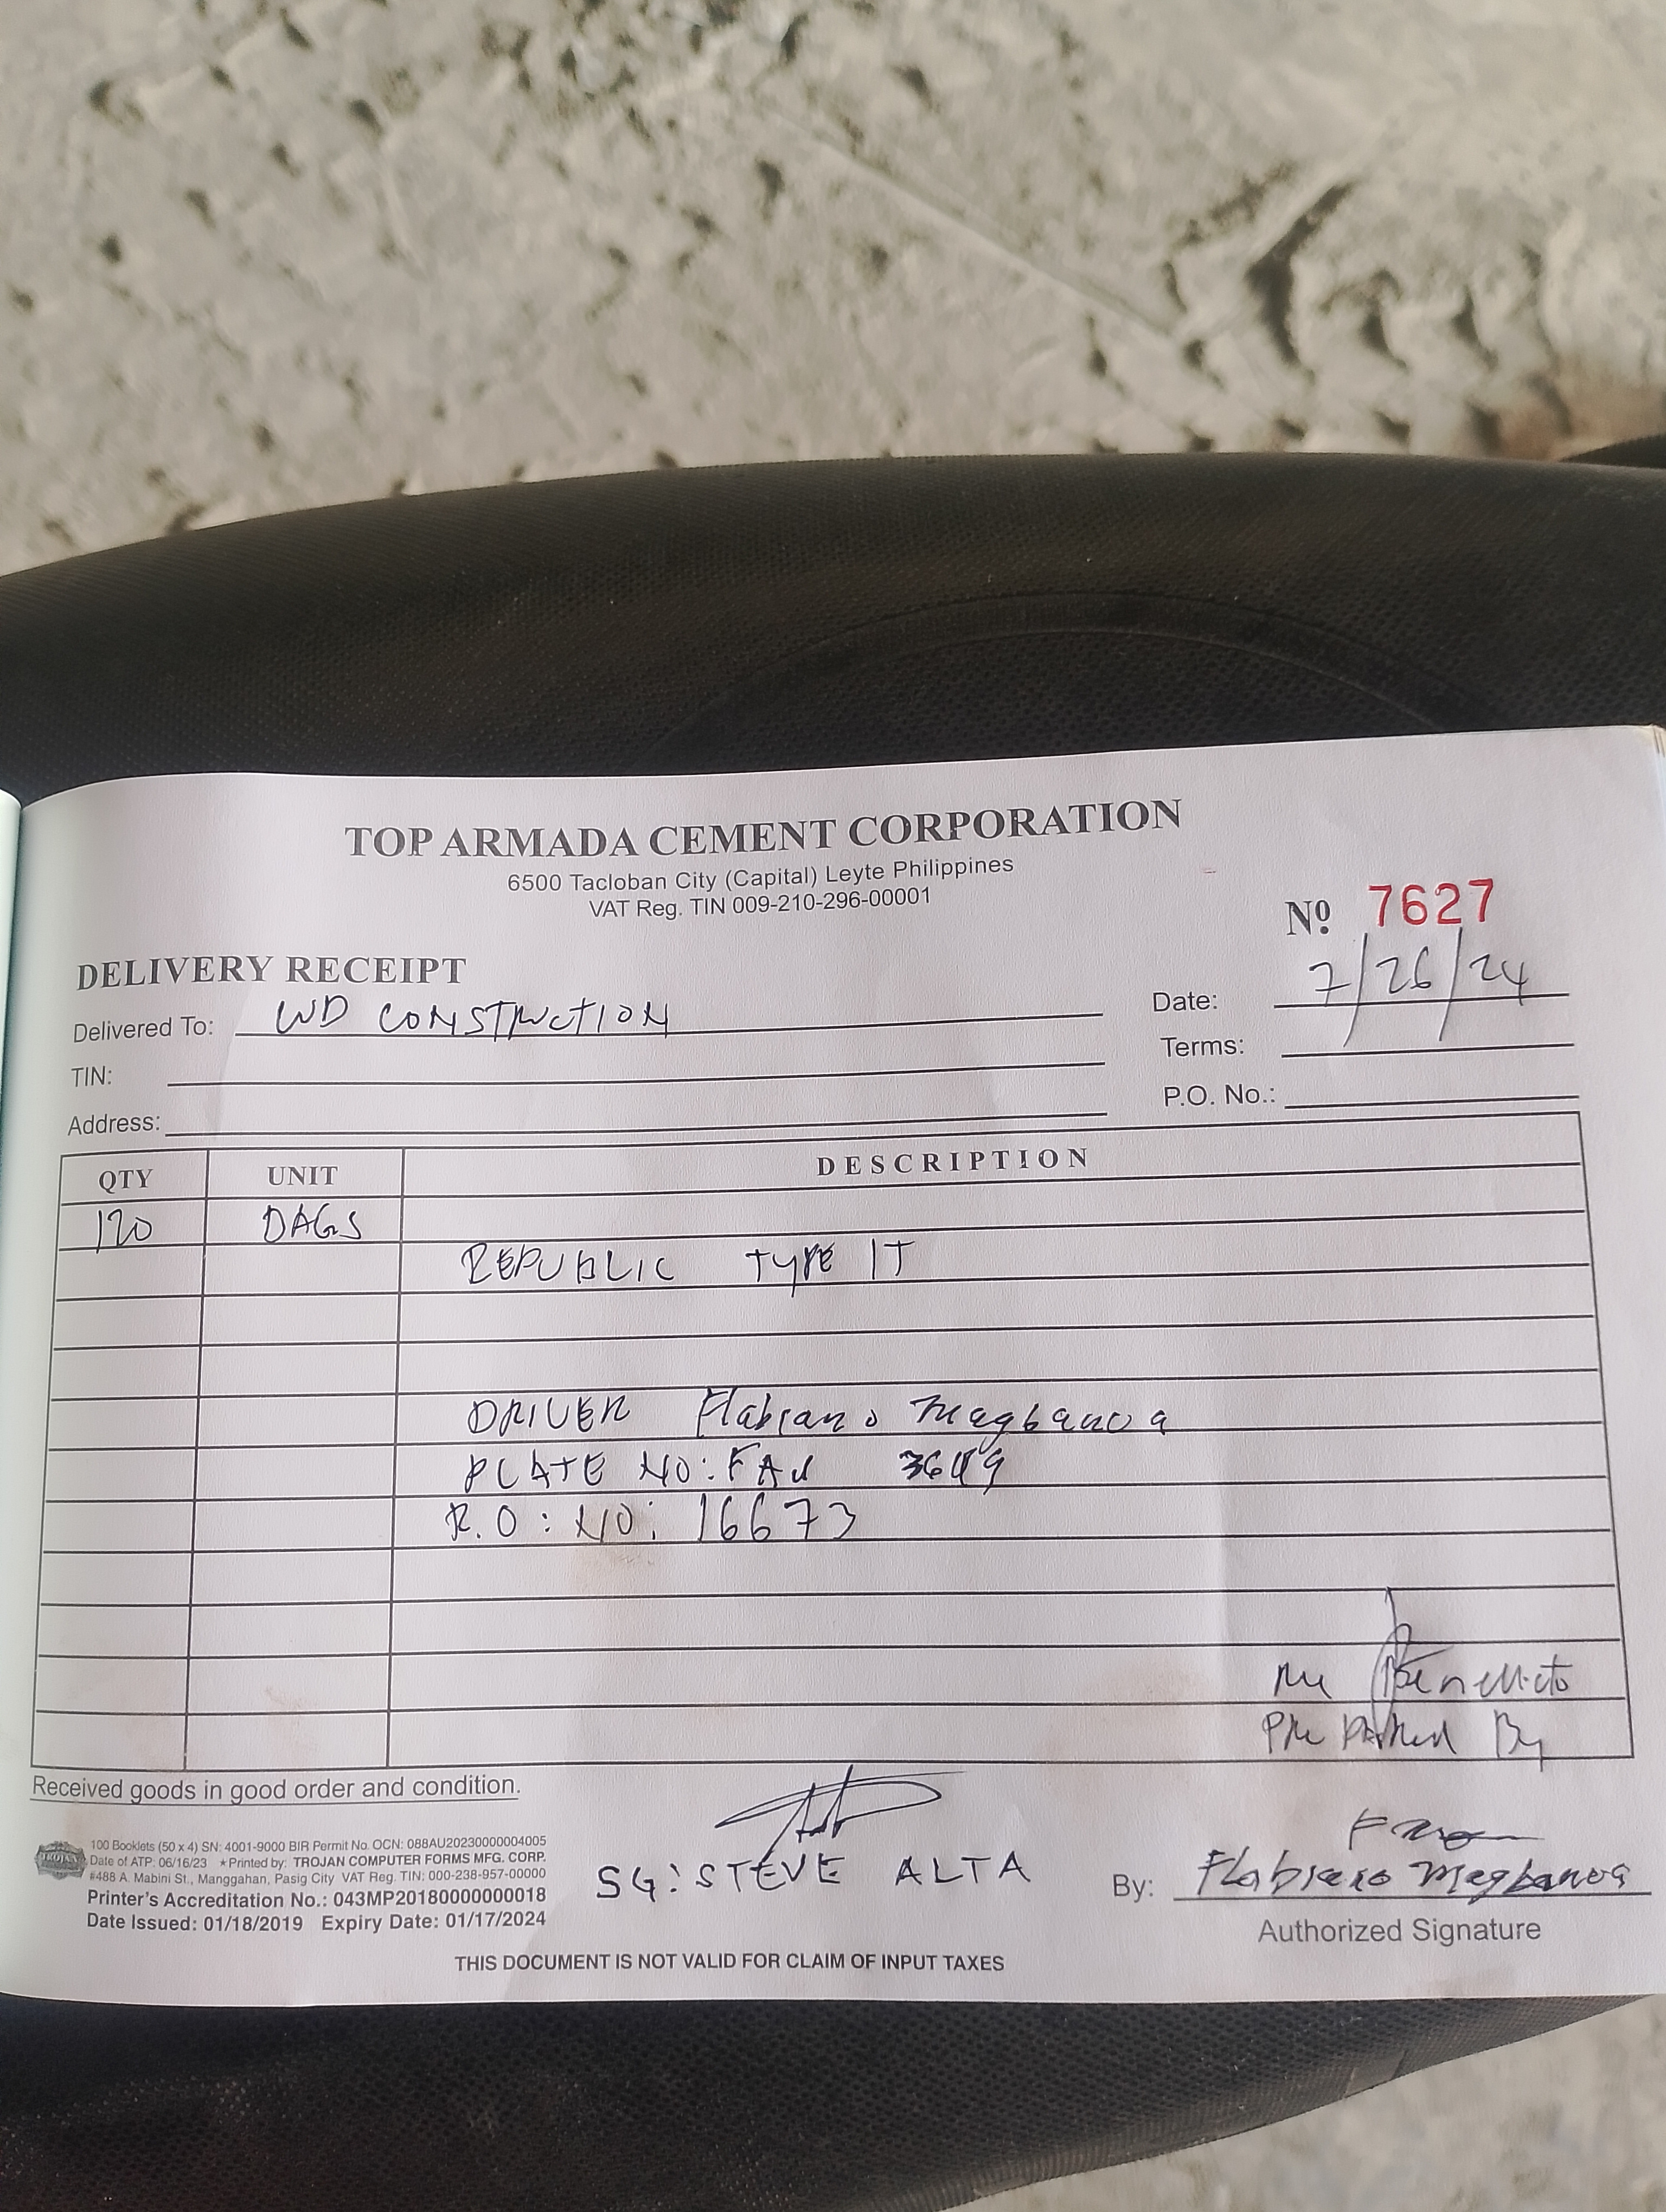 TOP ARMADA CEMENT CORPORATION
6500 Tacloban City (Capital) Leyte Philippines
VAT Reg. TIN 009-210-296-00001
Nº 7627
DELIVERY RECEIPT
Date: 7/26/24
Delivered To: WD CONSTRUCTION
Terms:
TIN:
P.O. No.:
Address:
QTY UNIT DESCRIPTION
120 BAGS
REPUBLIC TYPE IT
DRIVER Flabiano Magbanoa
PLATE NO: 
R.O: NO: 16673
Benedicto
By
Received goods in good order and condition.
100 Booklets (50 x 4) SN: 4001-9000 BIR Permit No. OCN: 088AU20230000004005
Date of ATP: 06/16/23 ★Printed by: TROJAN COMPUTER FORMS MFG. CORP.
#488 A. Mabini St., Manggahan, Pasig City VAT Reg. TIN: 000-238-957-00000
Printer's Accreditation No.: 043MP20180000000018
Date Issued: 01/18/2019 Expiry Date: 01/17/2024
TROJAN
SG: STEVE ALTA
By: Flabiano Magbanoa
Authorized Signature
THIS DOCUMENT IS NOT VALID FOR CLAIM OF INPUT TAXES